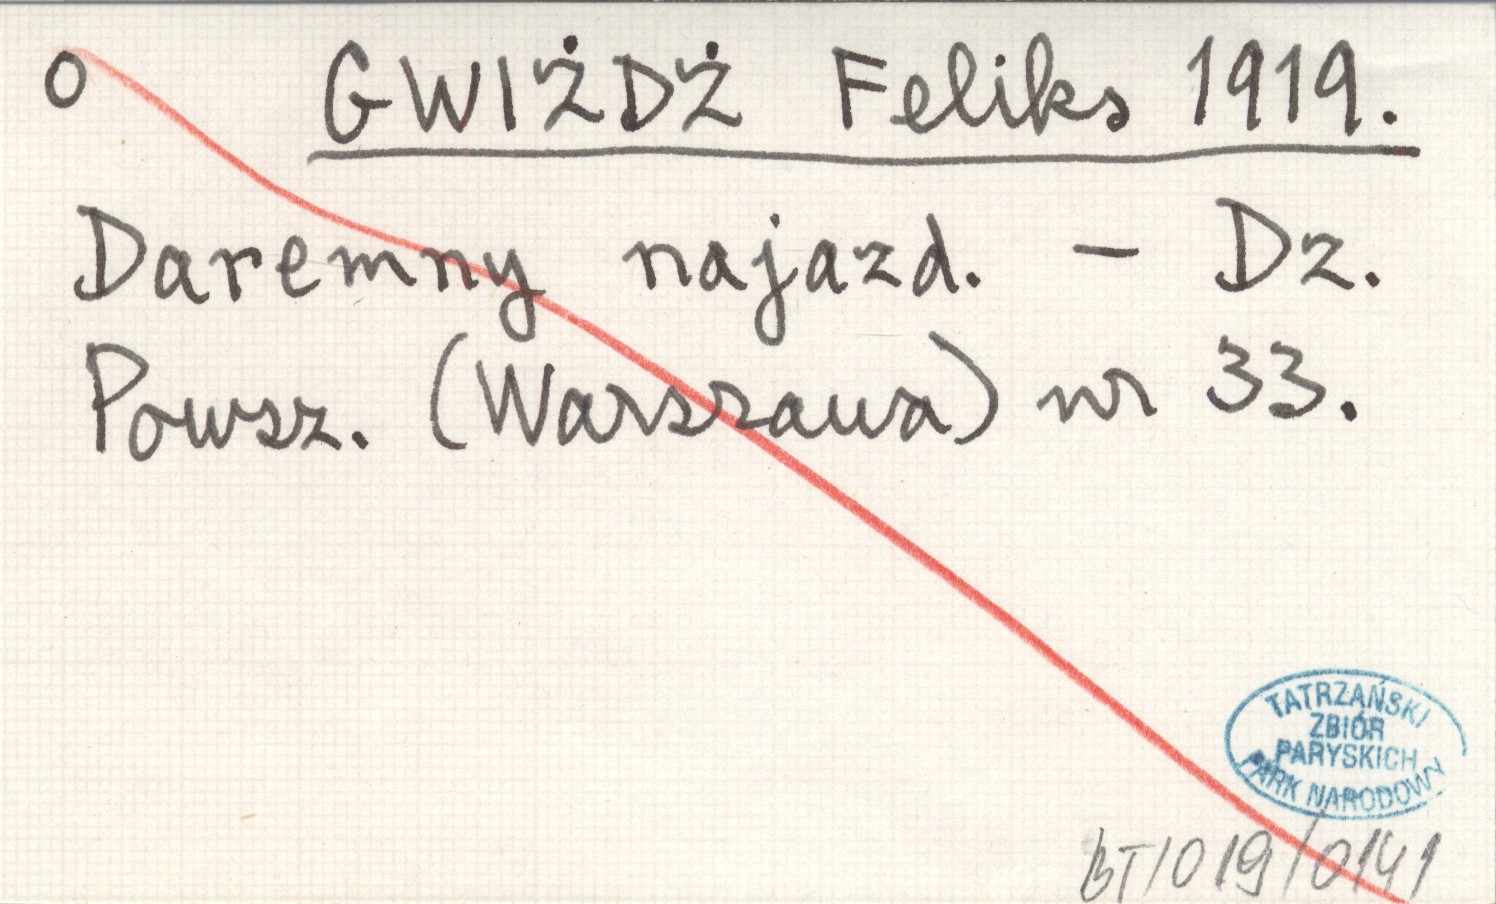 O GWIŻDŻ Feliks 1919.
Daremny najazd. – Dz.
Powsz. (Warszawa) nr 33.
TATRZAŃSKI
ZBIÓR
PARYSKICH
PARK NARODOWY
BT/019/0141